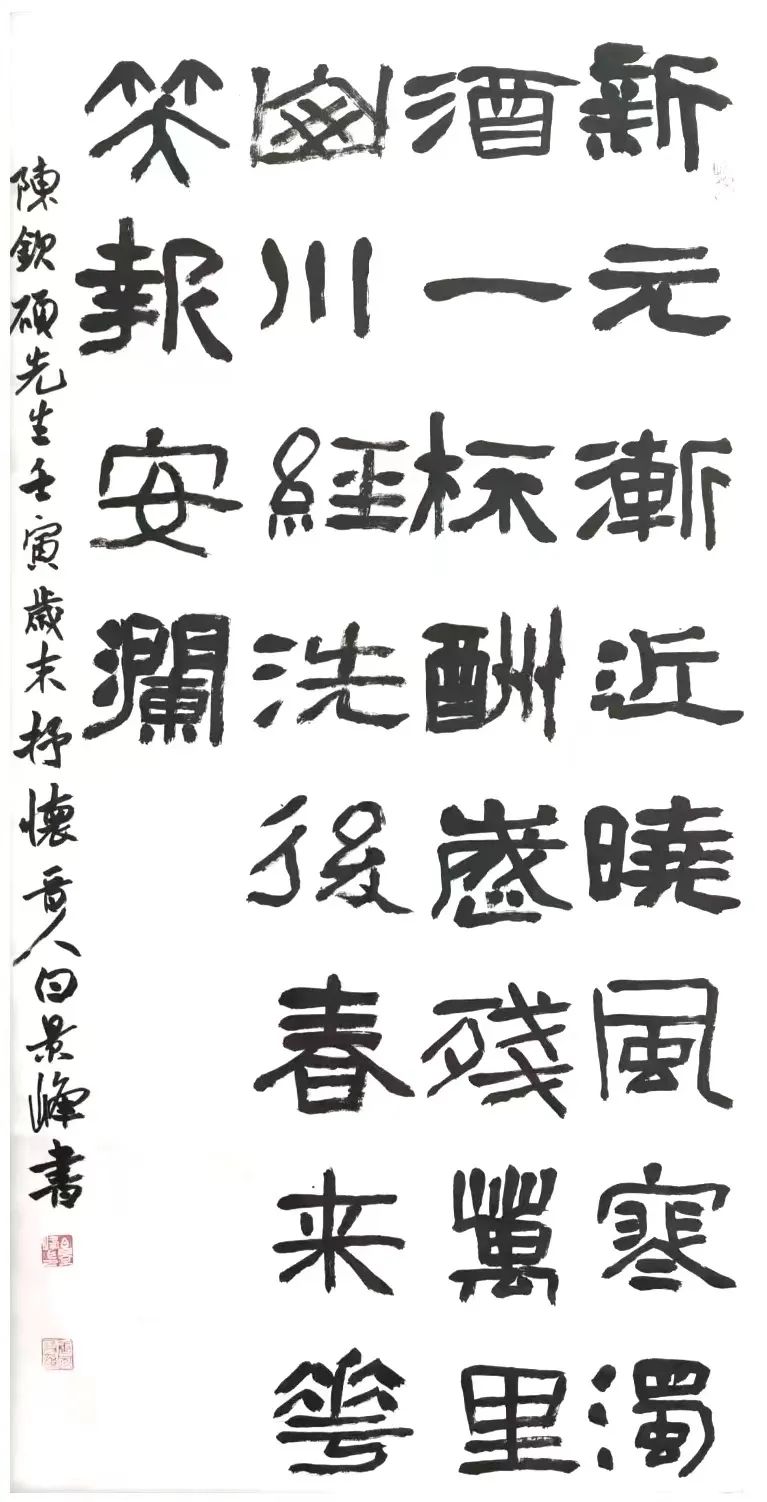 新元漸近曉風寒濁
酒一杯酬歲残萬里
川經洗後春来花
笑報安瀾
陳欽碩先生壬寅歲末抒懷晋人白景峰書